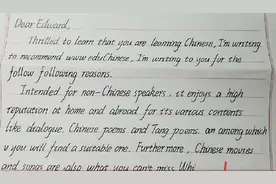 Dear Edward,
Thrilled to learn that you are learning Chinese, I'm writing
to recommend www eduChinese, I'm writing to you for the
follow following reasons.
Intended for non-Chinese speakers, it enjoys a high
reputation at home and abroad for its various contents
like dialogue. Chinese poems and Tang poems. an among which
you will find a suitable one. Furthermore, Chinese movies
and songs are also what you can't miss. Whi